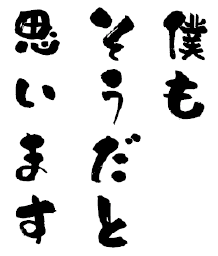 僕も
そうだと
思います